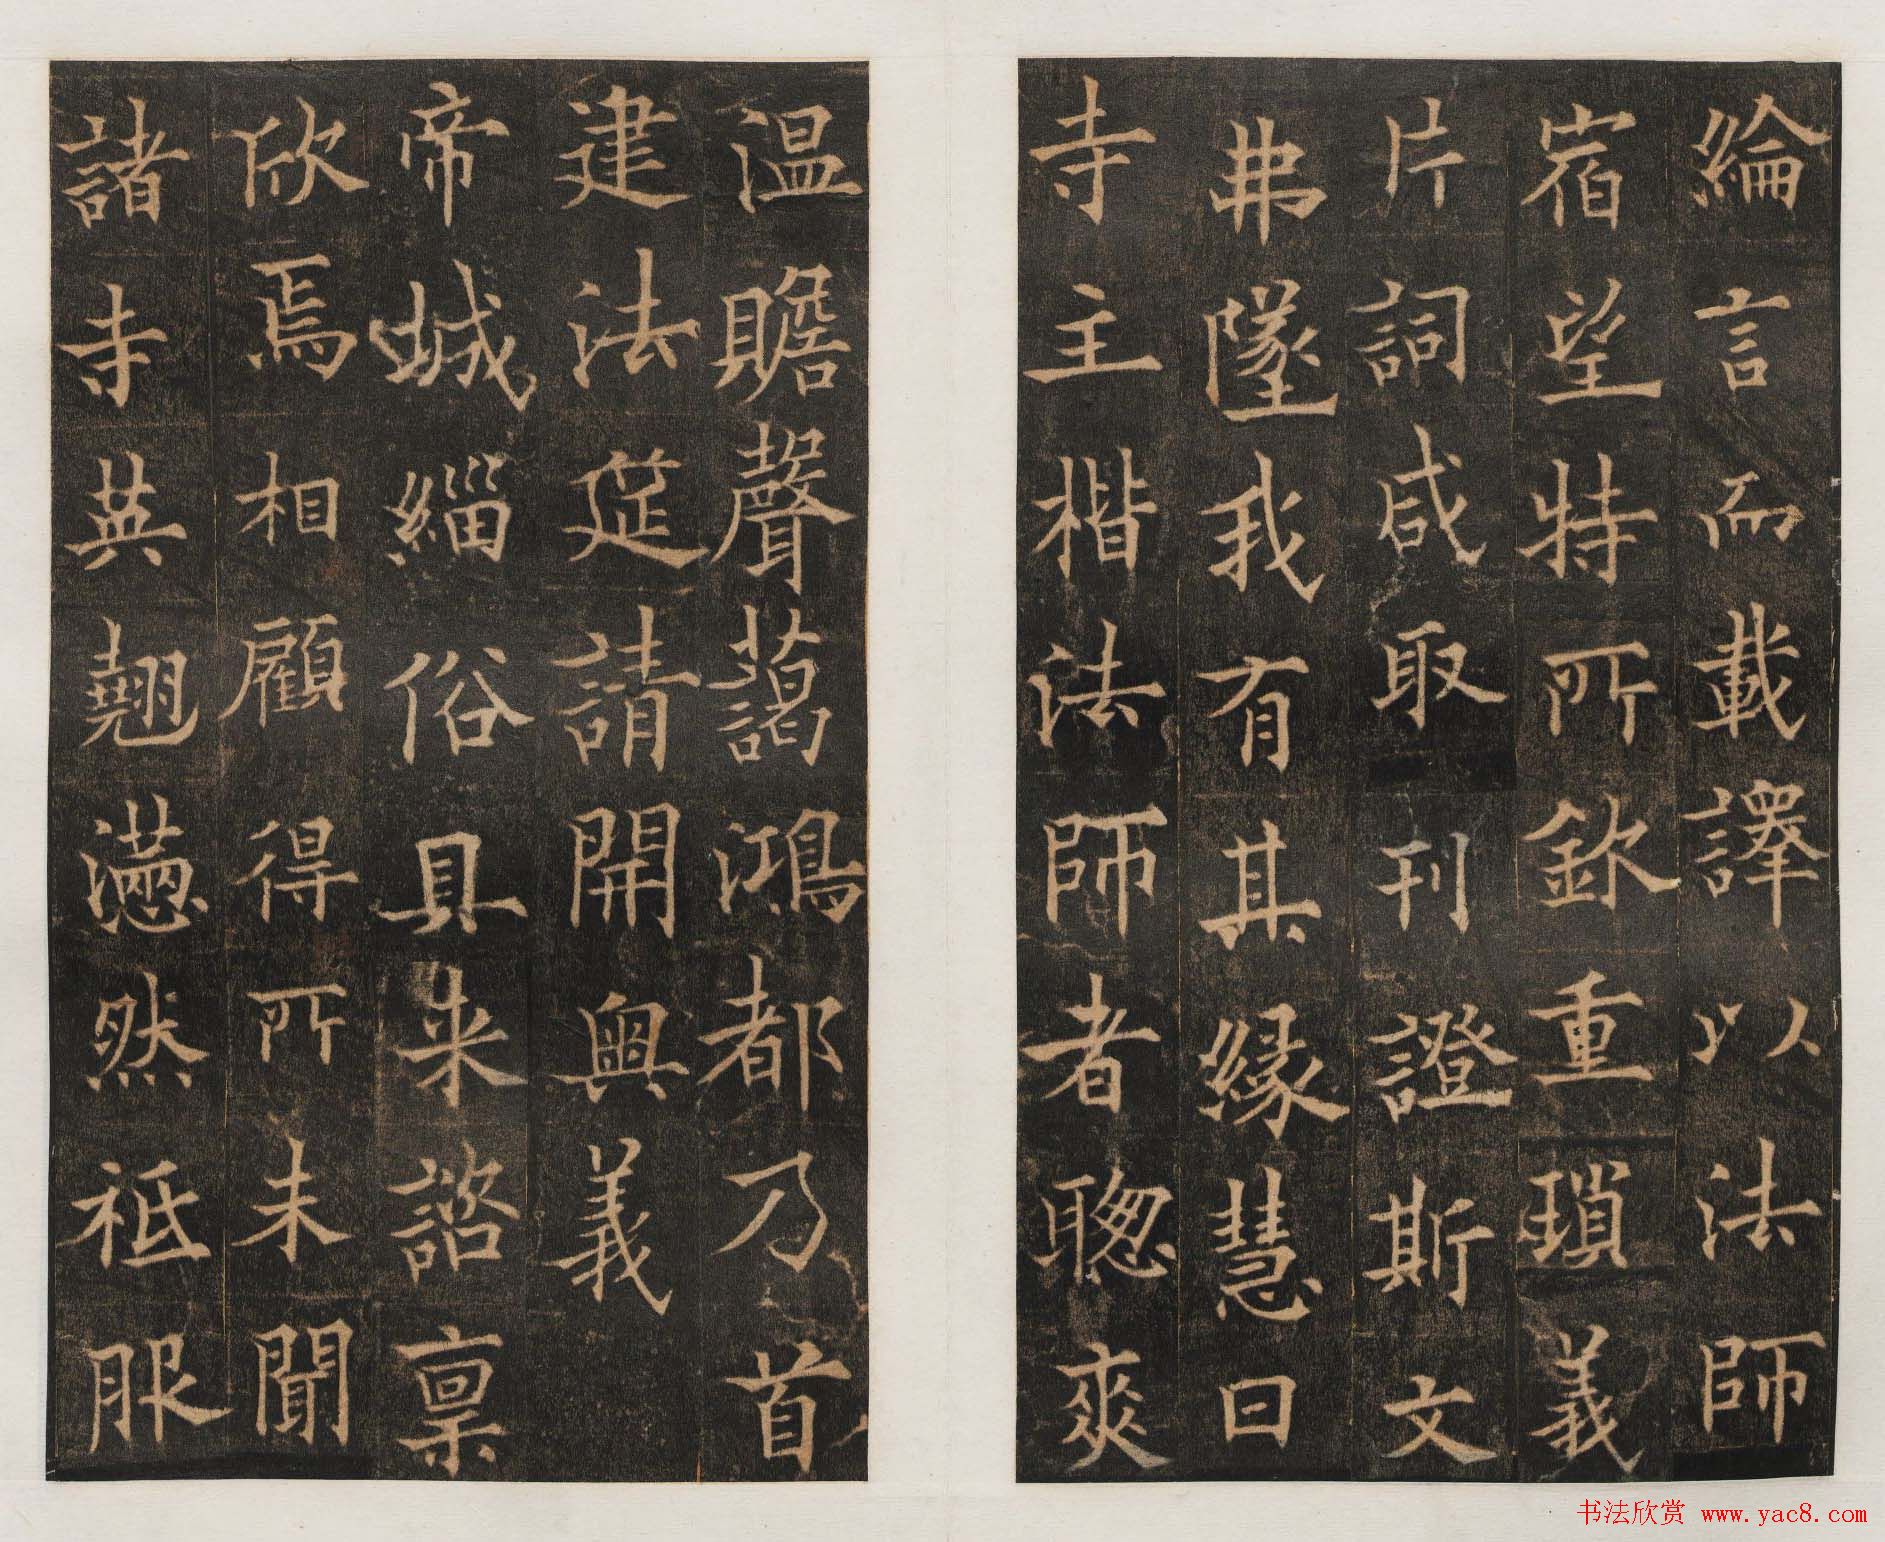 綸言而載譯以法師
宿望特所欽重瑣義
片詞咸取刊證斯文
弗墜我有其緣慧日
寺主楷法師者聰爽
温贍聲藹鴻都乃首
建法筵請開奧義
帝城緇俗具来諮稟
欣焉相顧得所未聞
諸寺英翹懣然祗服
书法欣赏 www.yac8.com